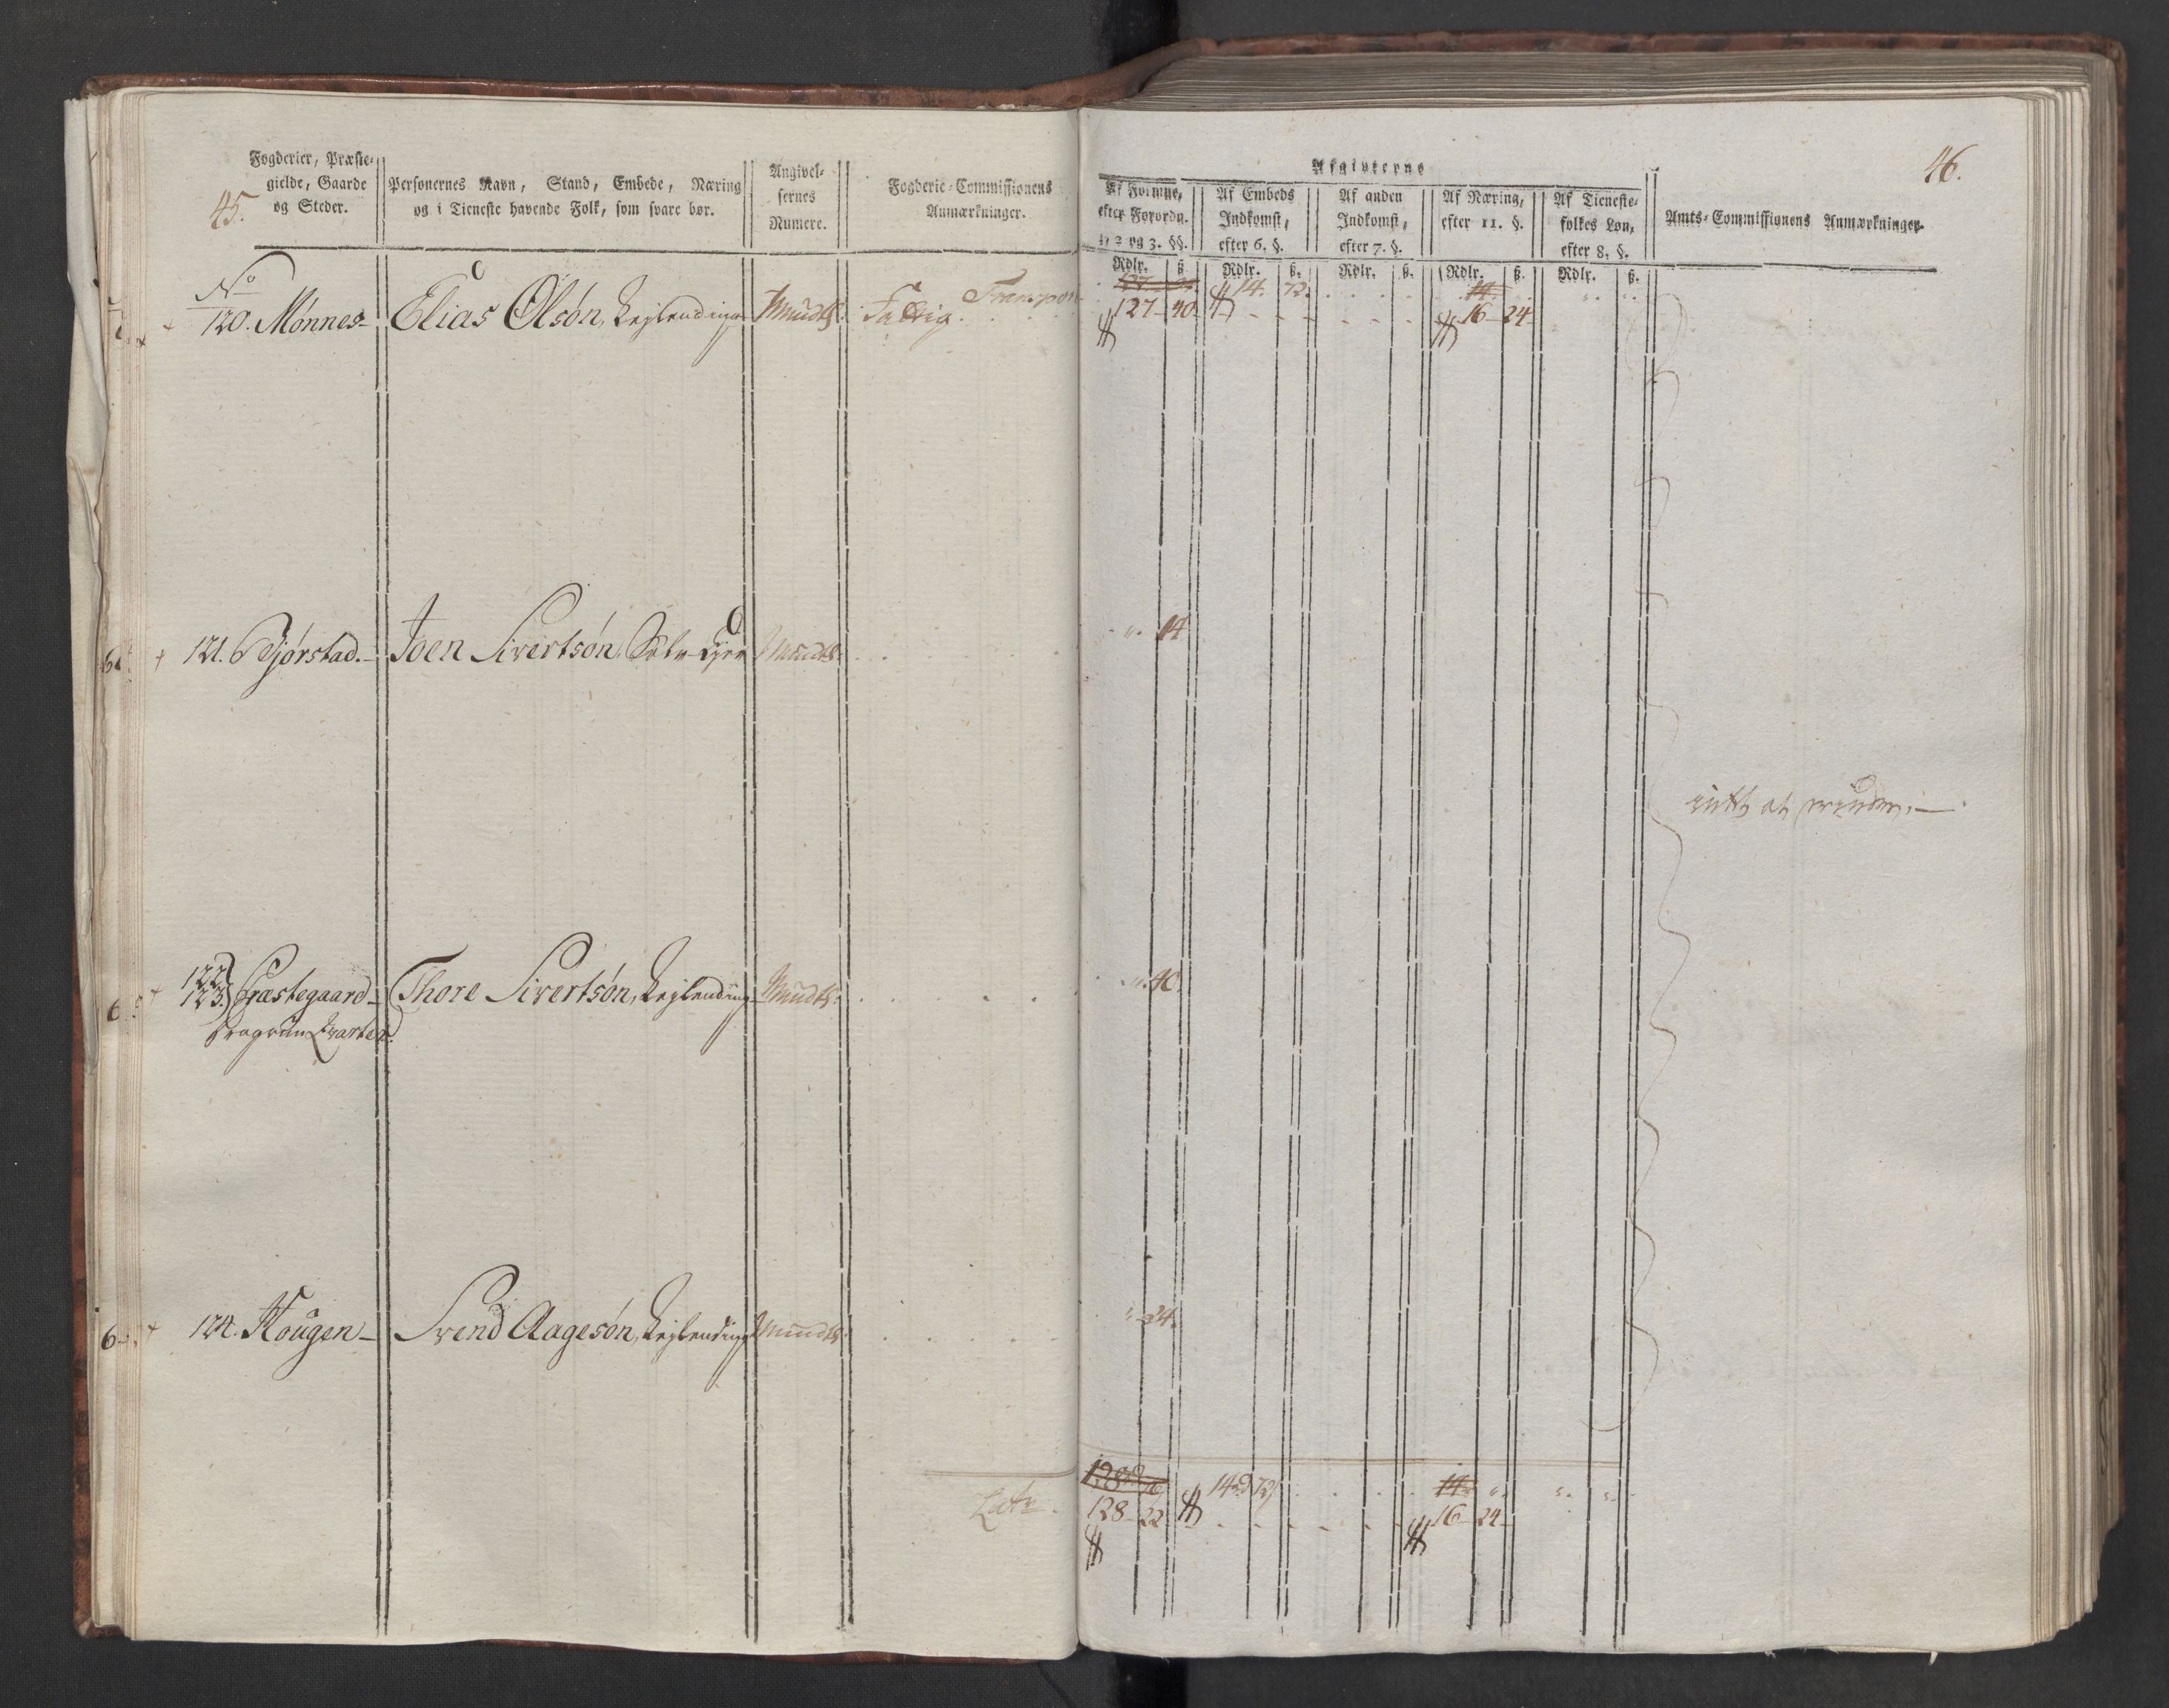 45.
Fogderier, Præste-
gielde, Gaarde
og Steder.
Personernes Navn, Stand, Embede, Næring
og i Tieneste havende Folk, som svare bør.
Angivel-
sernes
Numere.
Fogderie-Commissionens
Anmærkninger.
No
120. Mønnes Elias Olsøn, Leylending Mundtl. Fattig. Transport
121. Bjørstad. Joen Sivertsøn, Mundtl.
122
123 Præstegaard Thore Sivertsøn, Leylending Mundtl.
124. Hougen Svend Aagesøn, Leylending Mundtl.
Latr.
46.
Afgivterne
Af Formue,
efter Forordn.
1, 2 og 3. §§.
Af Embeds
Indkomst,
efter 6. §.
Af anden
Indkomst,
efter 7. §.
Af Næring,
efter 11. §.
Af Tieneste-
folkes Løn,
efter 8. §.
Amts-Commissionens Anmærkninger.
Rdlr. ß. Rdlr. ß. Rdlr. ß. Rdlr. ß. Rdlr. ß.
14. 72. 14.
127 40 16 24
14
intet at erindre.
40.
24.
14 72 14
128 22 16 24